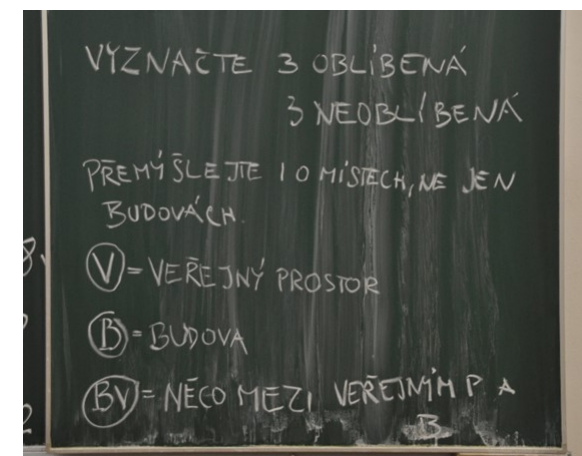 VYZNAČTE 3 OBLÍBENÁ
3 NEOBLÍBENÁ
PŘEMÝŠLEJTE I O MÍSTECH, NE JEN
BUDOVÁCH.
V = VEŘEJNÝ PROSTOR
B = BUDOVA
BV = NĚCO MEZI VEŘEJNÝM P A
B